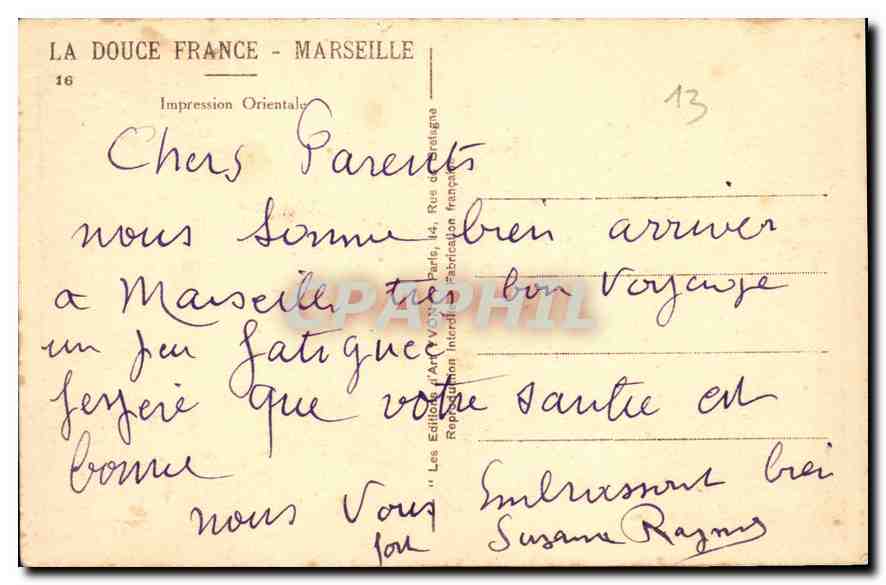 LA DOUCE FRANCE - MARSEILLE
16
Impression Orientale
13
Chers Parents
nous somme bien arriver
a Marseille tres bon Voyage
un peu fatiguee
Jespere que votre santée est
bonne
nous Vous Embrassont bien
fort Suzanne
" Les Editions d'Art YVON" Paris, 14, Rue de Bretagne
Reproduction Interdite Fabrication française
CPAPHIL